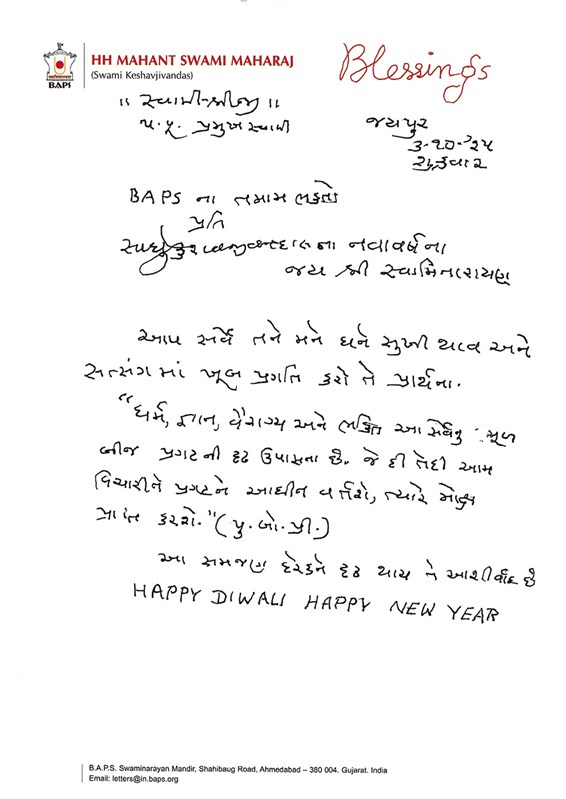 BAPS
HH MAHANT SWAMI MAHARAJ
(Swami Keshavjivandas)
Blessings
॥ સ્વામી-શ્રીજી ॥
પ.પૂ. પ્રમુખ સ્વામી
જયપુર
૩-૧૦-'૨૫
શુક્રવાર
BAPS ના તમામ ભક્તો
પ્રતિ
સાધુ કેશવજીવનદાસના નવાવર્ષના
જય શ્રી સ્વામિનારાયણ
આપ સર્વે તને મને ધને સુખી થાવ અને
સત્સંગમાં ખૂબ પ્રગતિ કરો તે પ્રાર્થના.
"ધર્મ, જ્ઞાન, વૈરાગ્ય અને ભક્તિ આ સર્વેનું મૂળ
બીજ પ્રગટની દૃઢ ઉપાસના છે. જે દી તેદી આમ
વિચારીને પ્રગટને આધીન વર્તશે, ત્યારે મોક્ષ
પ્રાપ્ત કરશે." (પુ. બો. પ્રી.)
આ સમજણ દરેકને દૃઢ થાય તે આશીર્વાદ છે
HAPPY DIWALI HAPPY NEW YEAR
B.A.P.S. Swaminarayan Mandir, Shahibaug Road, Ahmedabad – 380 004. Gujarat. India
Email: letters@in.baps.org